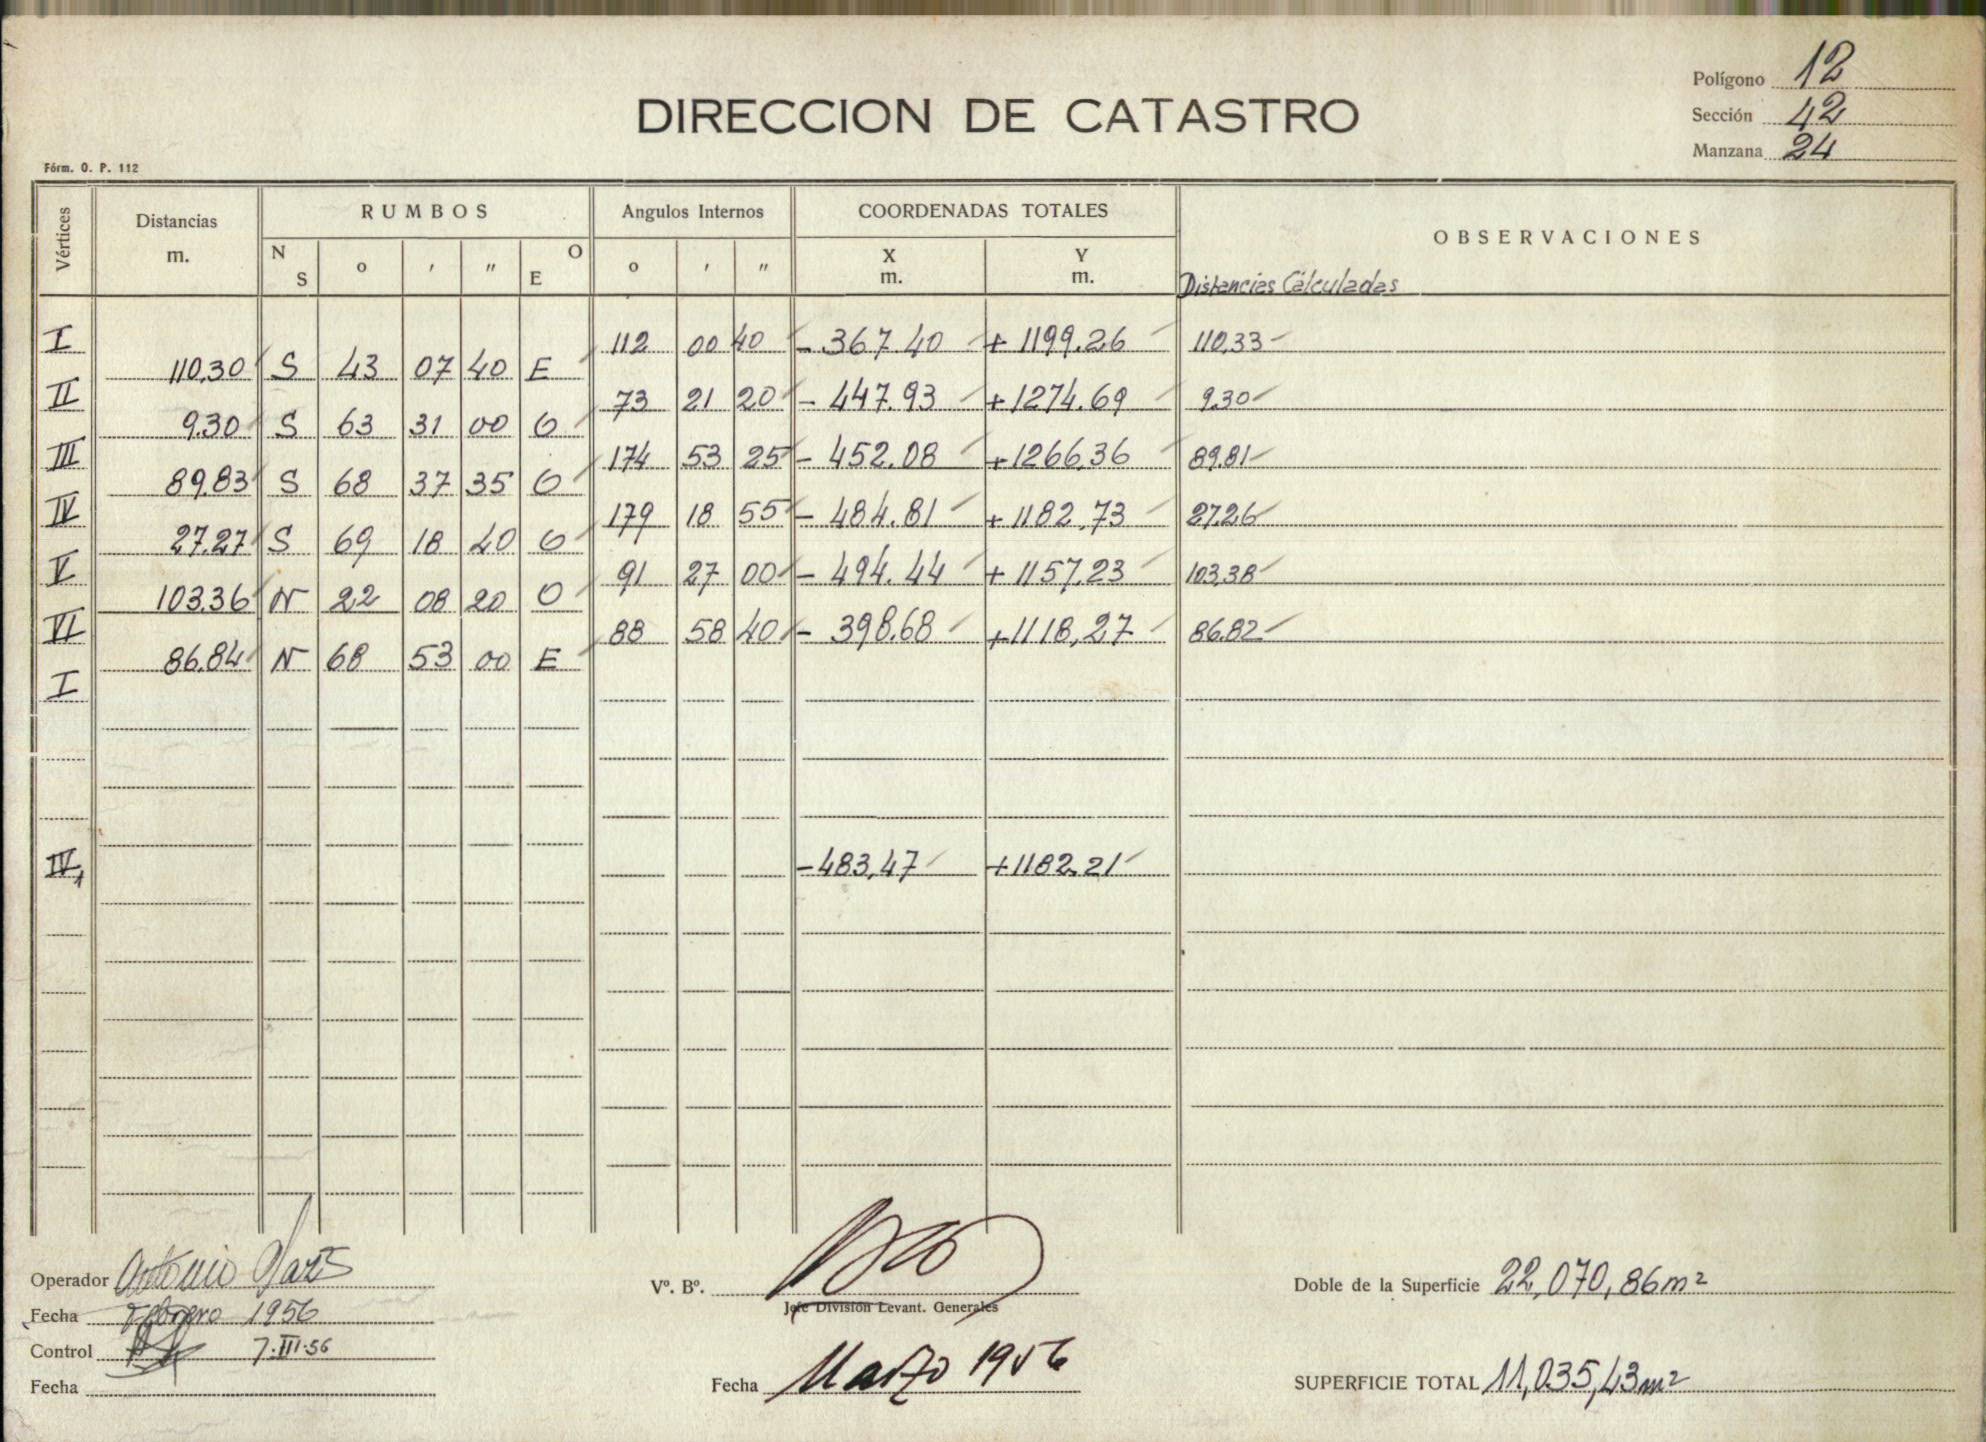 Polígono 12
DIRECCION DE CATASTRO
Sección 42
Manzana 24
Fórm. O. P. 112
Vértices Distancias m. RUMBOS Angulos Internos COORDENADAS TOTALES OBSERVACIONES
N S o ' " O E o ' " X m. Y m. Distancias Calculadas
I 112 00 40 - 367.40 + 1199.26 110.33
110.30 S 43 07 40 E
II 73 21 20 - 447.93 + 1274.69 9.30
9.30 S 63 31 00 O
III 174 53 25 - 452.08 + 1266.36 89.81
89.83 S 68 37 35 O
IV 179 18 55 - 484.81 + 1182.73 27.26
27.27 S 69 18 40 O
V 91 27 00 - 494.44 + 1157.23 103.38
103.36 N 22 08 20 O
VI 88 58 40 - 398.68 + 1118,27 86.82
86.84 N 68 53 00 E
I
IV1 - 483,47 + 1182.21
Operador Antonio
Vº. Bº.
Doble de la Superficie 22,070,86 m²
Jefe División Levant. Generales
Fecha Febrero 1956
Control 7·III·56
Fecha Marzo 1956
SUPERFICIE TOTAL 11,035,43 m²
Fecha